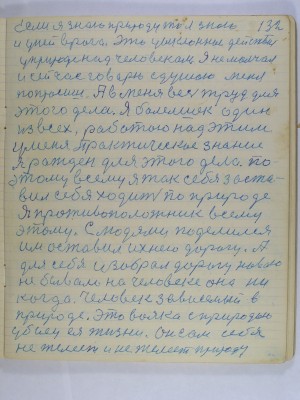 если я знаю природу то я знаю 132
и у ней врага. Это условенное действие
у природе над человекам. Я не молчал
и сейчас говорю слушаю меня
попросили. А в меня весь труд для
этого дела. Я болельщек один
из всех, работаю над этим
у меня практическое знание
Я рожден для этого дела. По
этому всему я так себя заста-
вил себя ходить по природе
Я противоположник всему
этому. С людями поделился
им оставил ихнею дорогу. А
для себя избрал дорогу новаю
не бывало на человеке она ни
когда. Человек зависемый в
природе. Это вояка с природаю
убиец ея жизни. Он сам себя
не желеит и не желеит природу